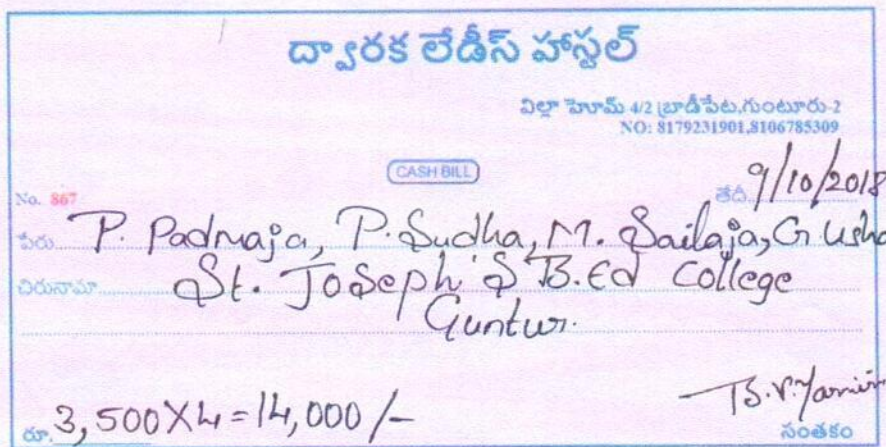 ద్వారక లేడీస్ హాస్టల్
విల్లా హెూమ్ 4/2 బ్రాడీపేట,గుంటూరు-2
NO: 8179231901,8106785309
CASH BILL
No. 867 తేదీ. 9/10/2018
పేరు. P. Padmaja, P. Sudha, M. Sailaja, G Usha
చిరునామా St. Joseph's B.Ed College
Guntur.
రూ. 3,500X4=14,000/-
సంతకం